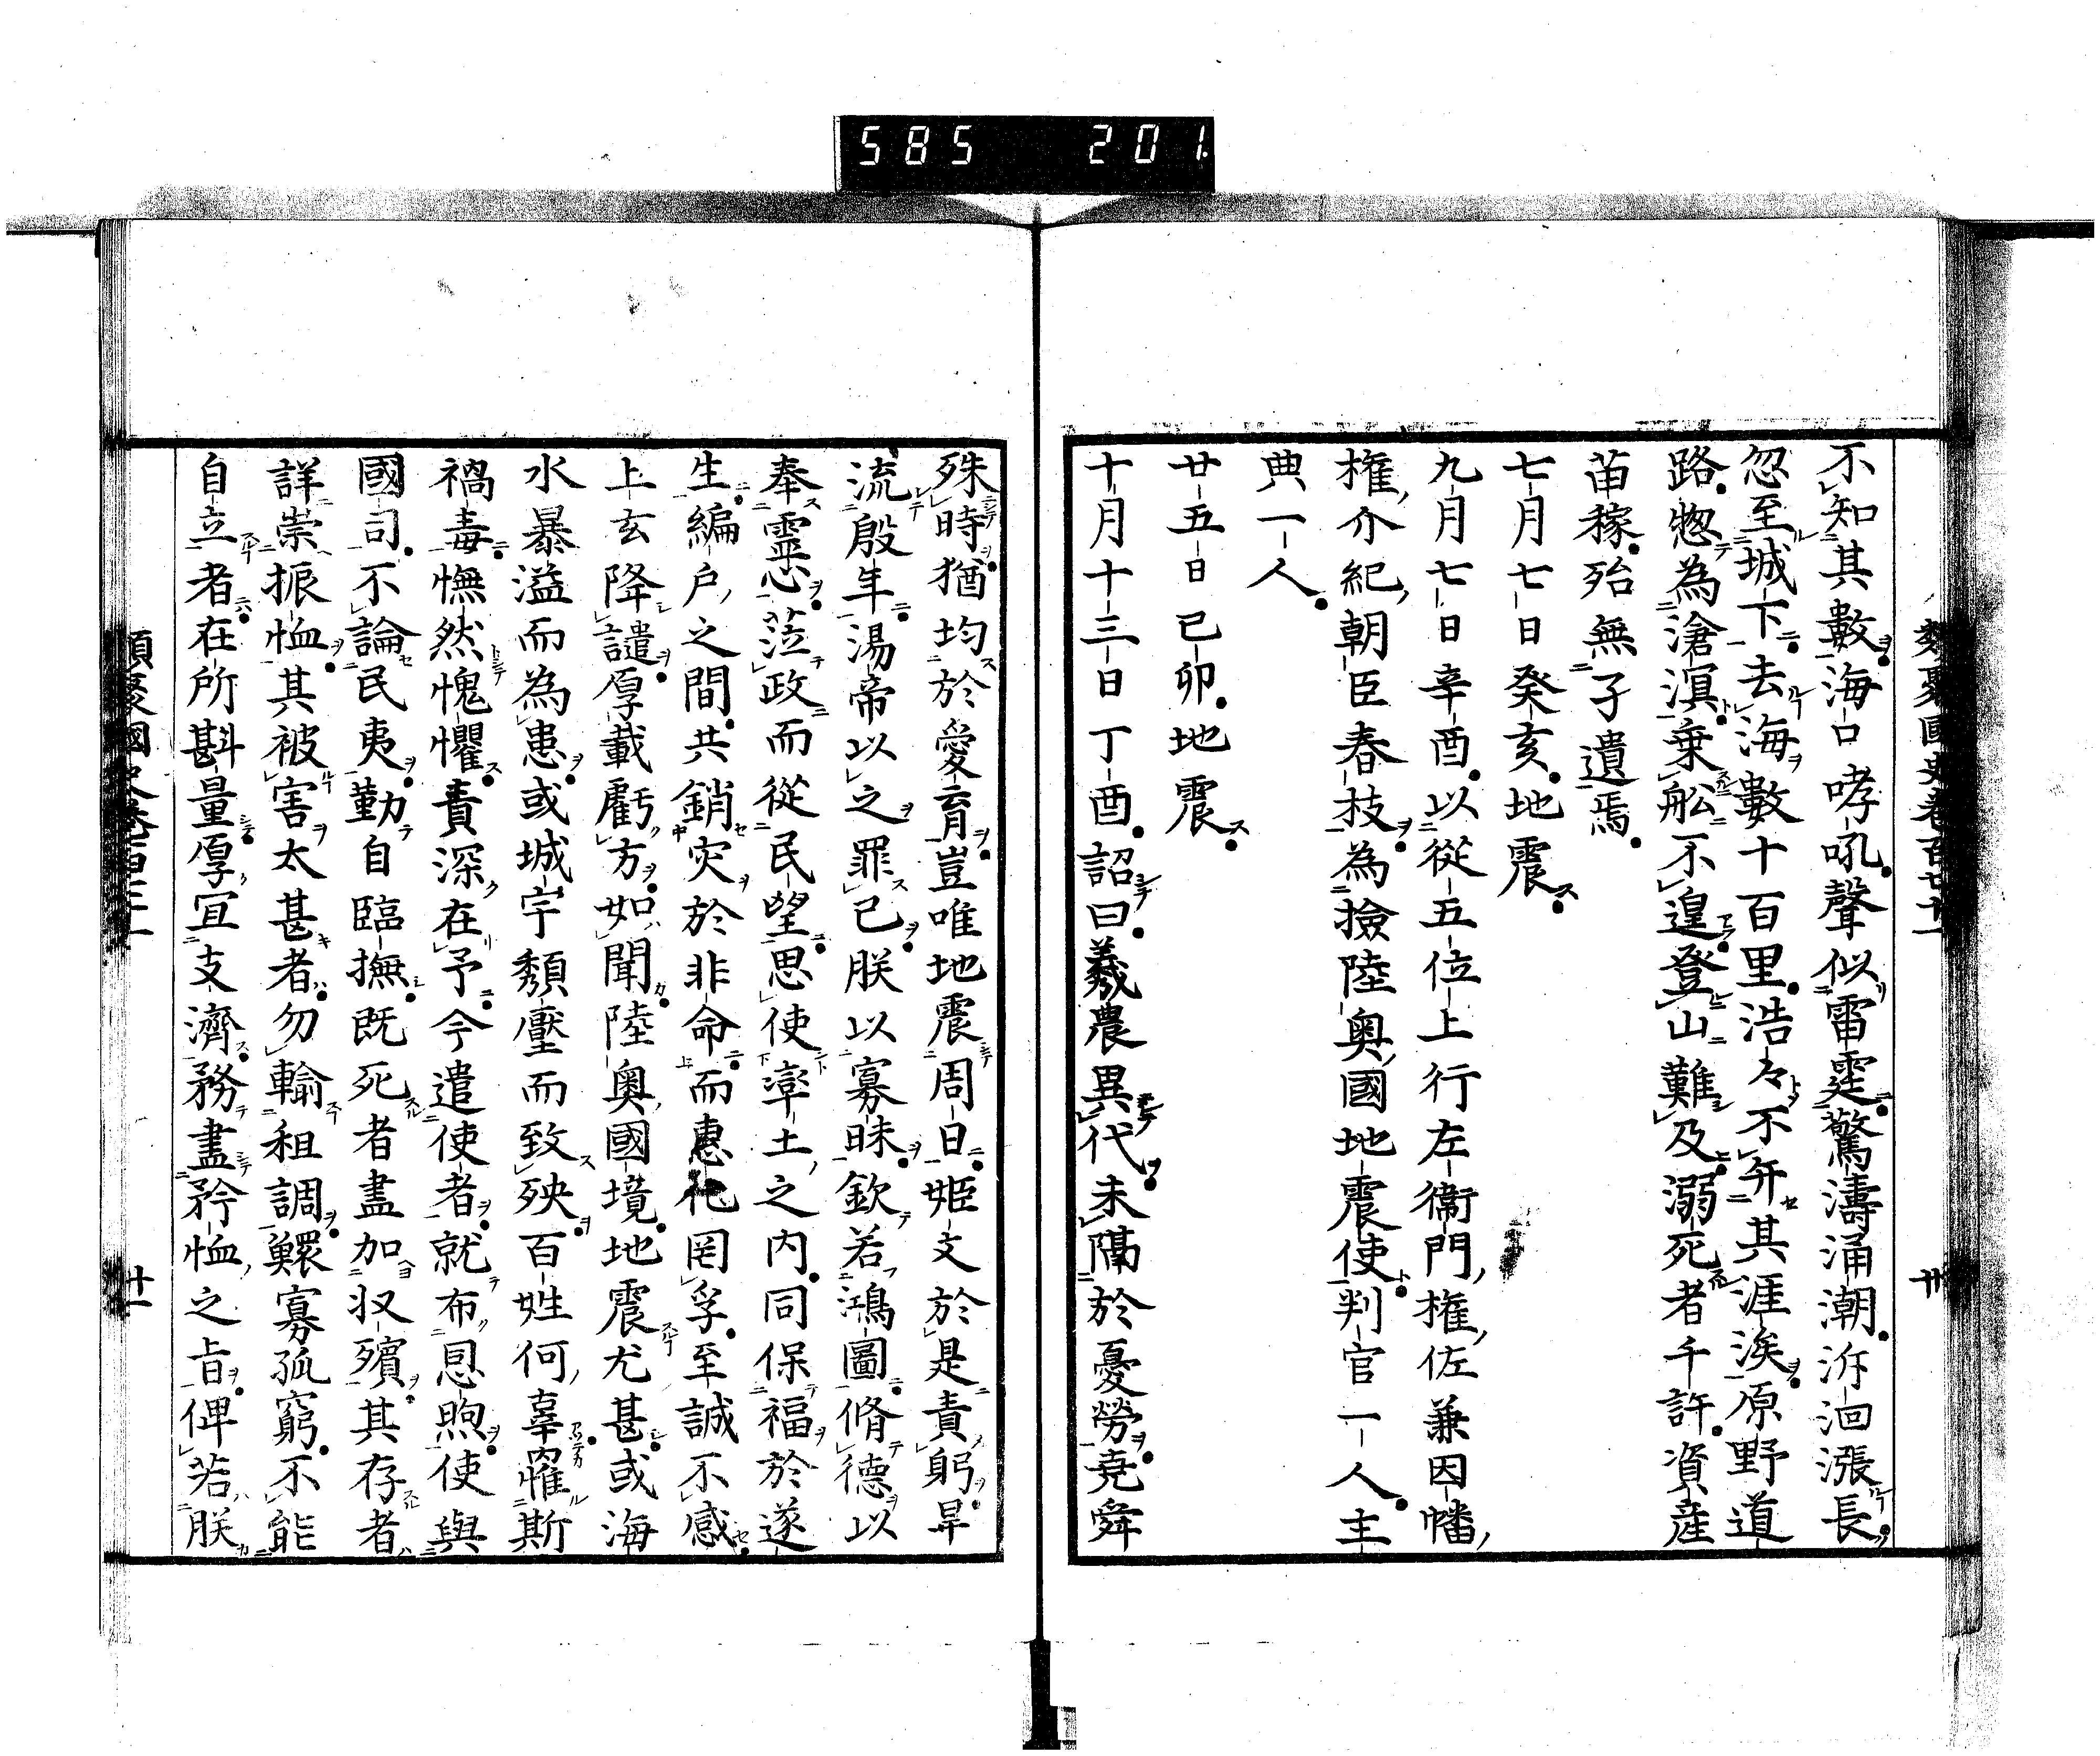 585 201
類聚國史卷百七十一 卅
不知其數海口哮吼聲似雷霆驚濤涌潮泝洄漲長
忽至城下去海數十百里浩々不弁其涯涘原野道
路惣為滄溟乗舩不遑登山難及溺死者千許資産
苗稼殆無孑遺焉
七月七日癸亥地震
九月七日辛酉以從五位上行左衞門權佐兼因幡
權介紀朝臣春枝為撿陸奥國地震使判官一人主
典一人
廿五日己卯地震
十月十三日丁酉詔曰羲農異代未隔於憂勞堯舜
殊時猶均於愛育豈唯地震周日姫文於是責躬旱
流殷年湯帝以之罪己朕以寡昧欽若鴻圖脩德以
奉靈心莅政而從民望思使率土之内同保福於遂
生編戶之間共銷灾於非命而惠化罔孚至誠不感
上玄降譴厚載虧方如聞陸奥國境地震尤甚或海
水暴溢而為患或城宇頽壓而致殃百姓何辜罹斯
禍毒憮然愧懼責深在予今遣使者就布恩煦使與
國司不論民夷勤自臨撫既死者盡加収殯其存者
詳崇振恤其被害太甚者勿輸租調鰥寡孤窮不能
自立者在所斟量厚宜支濟務盡矜恤之旨俾若朕
類聚國史卷百七十一 卅一